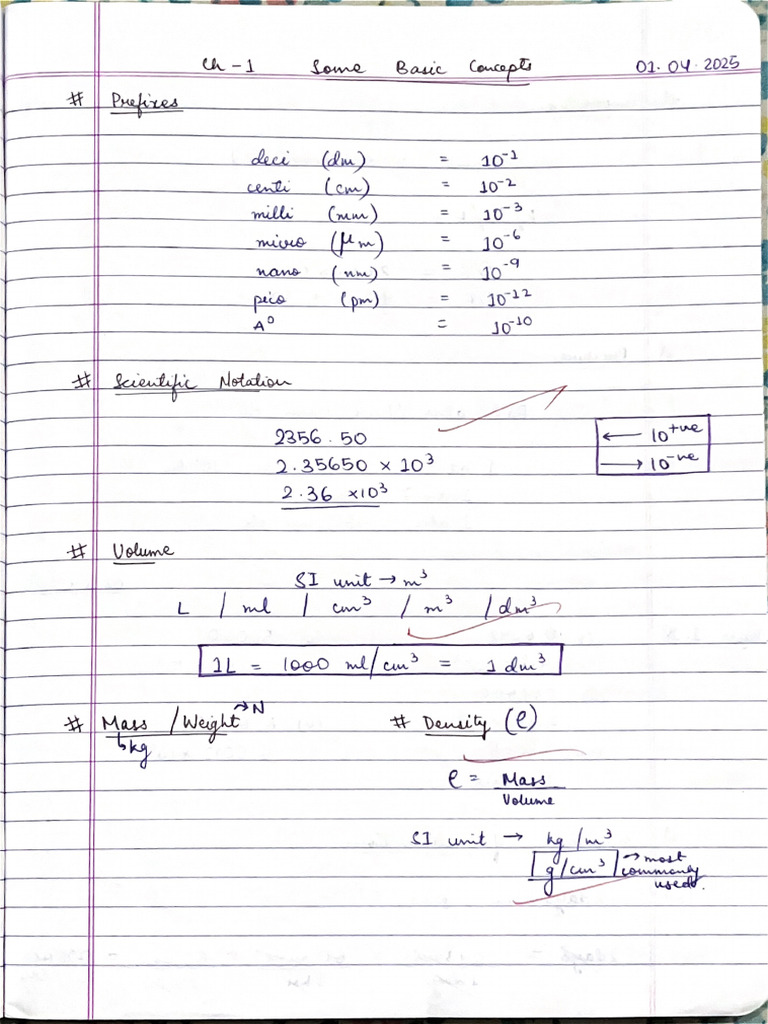 Ch - 1 Some Basic Concepts 01.04.2025
# Prefixes
deci (dm) = 10⁻¹
centi (cm) = 10⁻²
milli (mm) = 10⁻³
micro (μm) = 10⁻⁶
nano (nm) = 10⁻⁹
pico (pm) = 10⁻¹²
A⁰ = 10⁻¹⁰
# Scientific Notation
2356.50
2.35650 × 10³
2.36 × 10³
← 10⁺ᵛᵉ
→ 10⁻ᵛᵉ
# Volume
SI unit → m³
L / ml / cm³ / m³ / dm³
1L = 1000 ml/cm³ = 1 dm³
# Mass / Weight → N
↳ kg
# Density (ρ)
ρ = Mass
Volume
SI unit → kg/m³
g/cm³ → most
commonly
used.